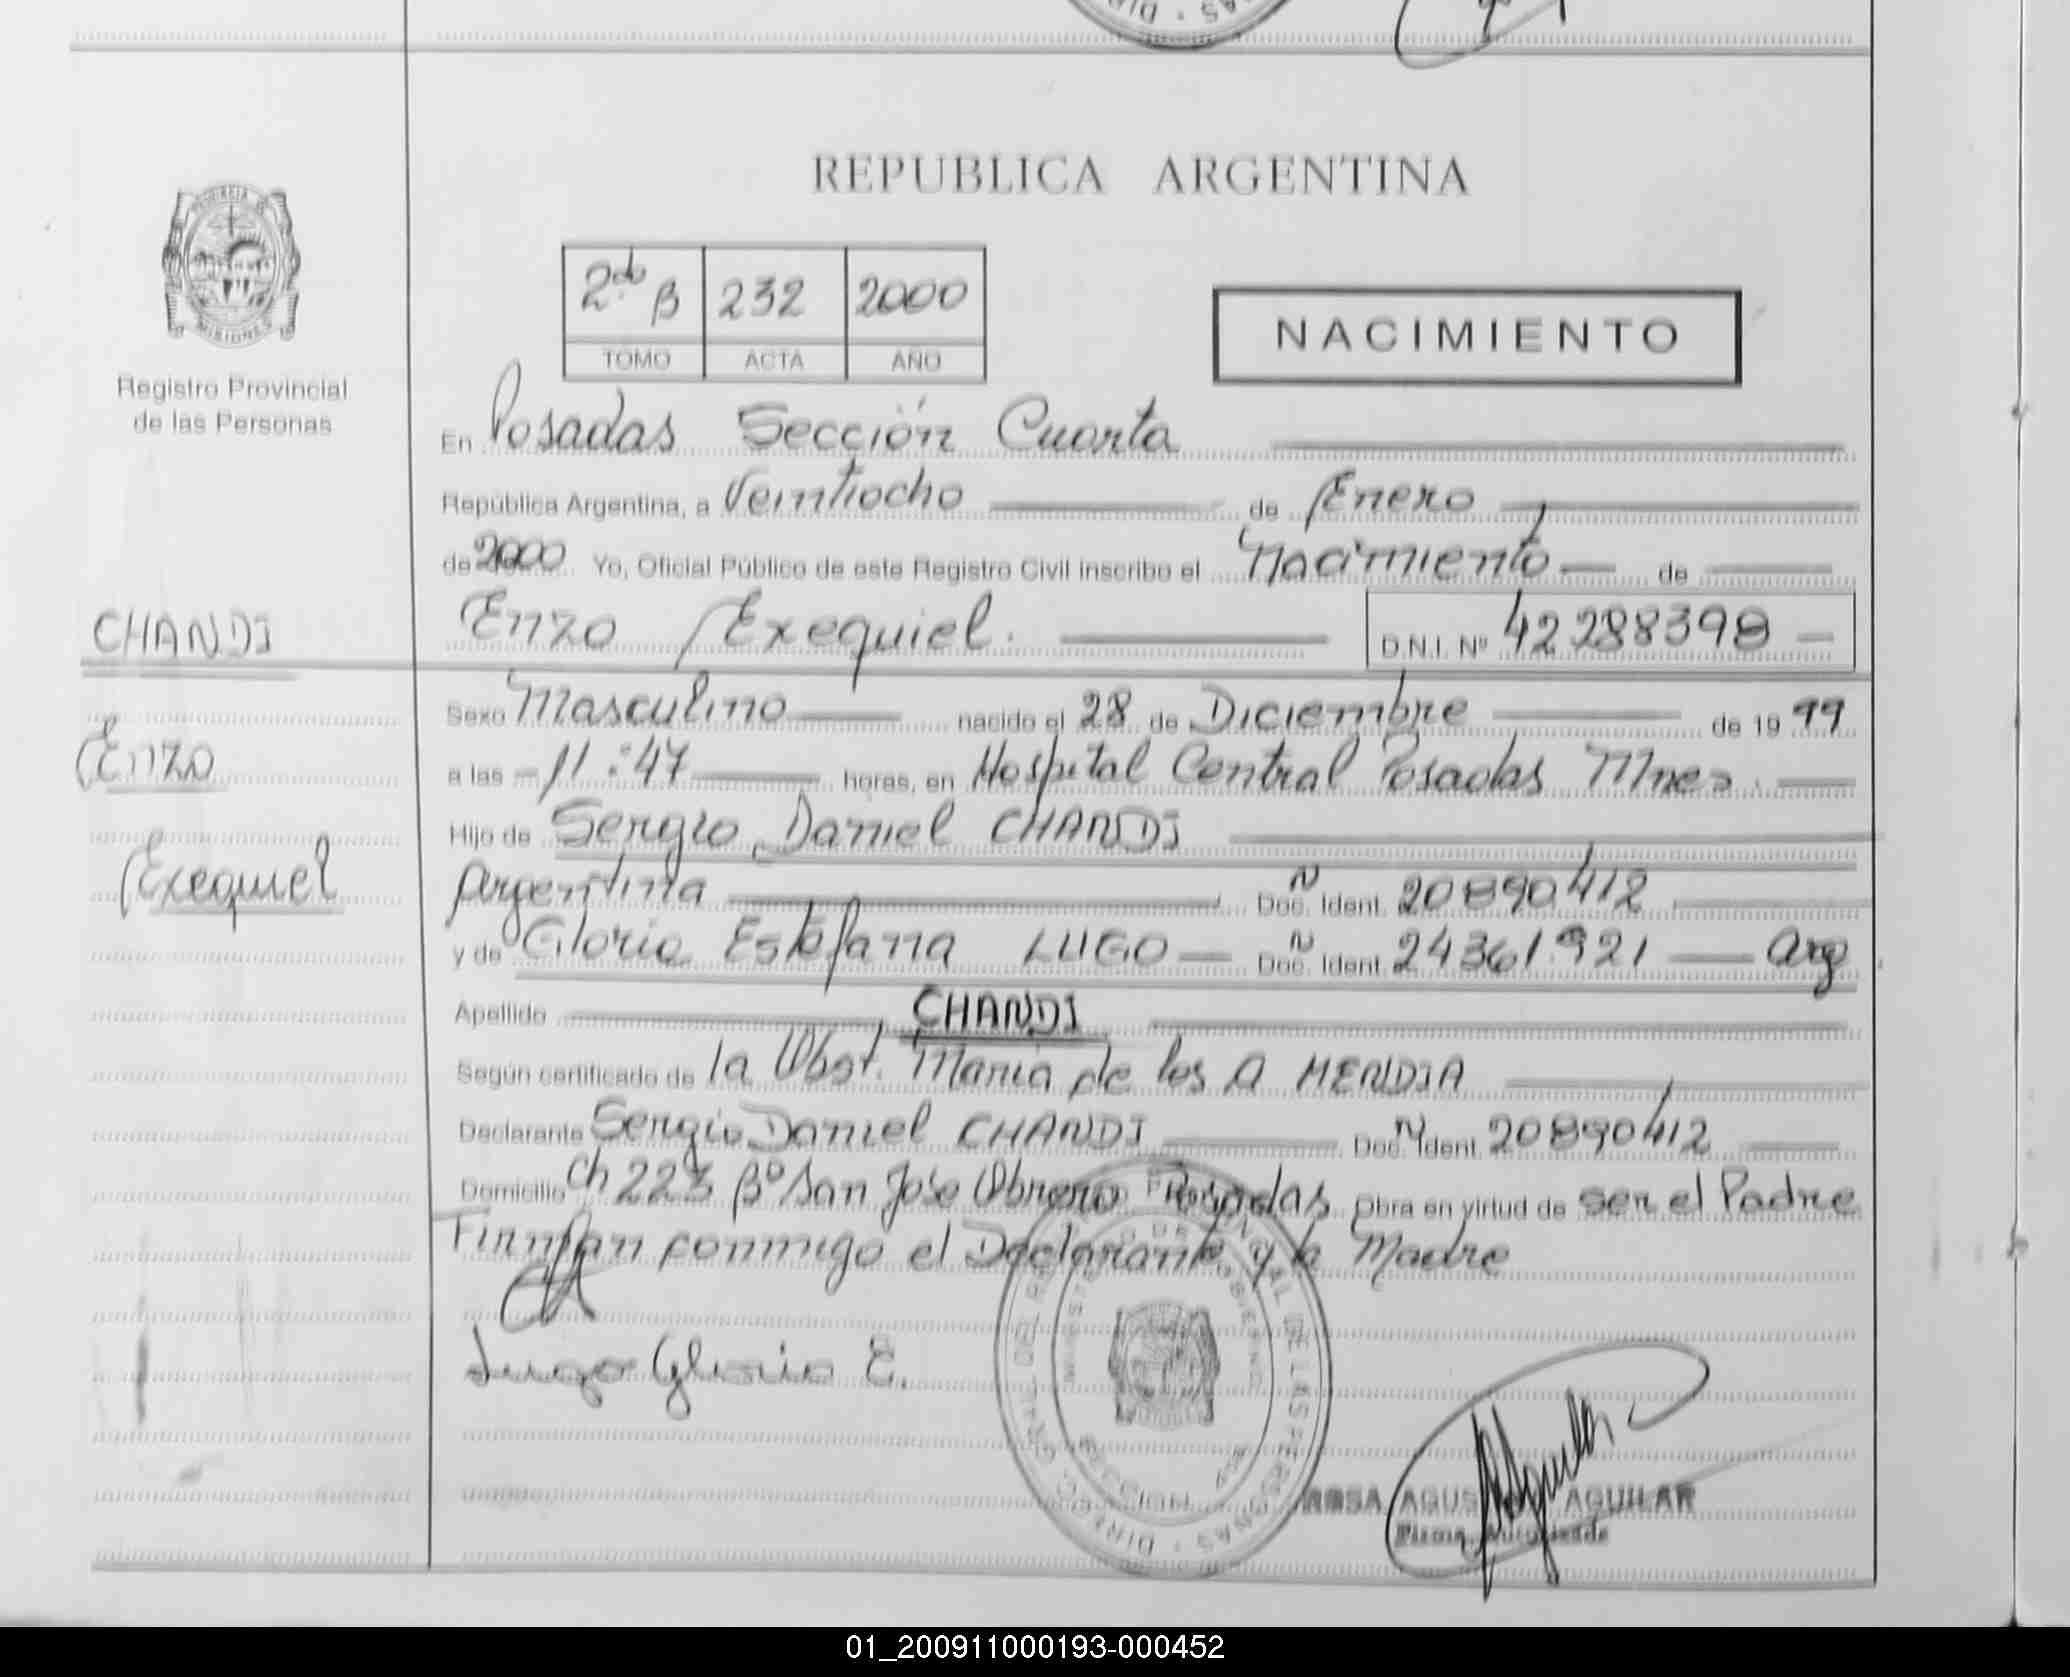 REPUBLICA ARGENTINA
PROVINCIA DE
MISIONES
Registro Provincial
de las Personas
2do B 232 2000
TOMO ACTA AÑO
NACIMIENTO
En Posadas Sección Cuarta
República Argentina, a Veintiocho de Enero
de 2000 Yo, Oficial Público de este Registro Civil inscribo el Nacimiento de
CHANDI
Enzo Exequiel. D.N.I. Nº 42288398
Sexo Masculino nacido el 28 de Diciembre de 19 99
Enzo
a las 11:47 horas, en Hospital Central Posadas Mnes.
Hijo de Sergio Daniel CHANDI
Exequiel
Argentina Doc. Ident. 20890412
y de Gloria Estefana LUGO Doc. Ident. 24361.921 Arg
Apellido CHANDI
Según certificado de la Obst. Maria de los A MENDIA
Declarante Sergio Daniel CHANDI Doc. Ident. 20890412
Domicilio Ch 223 Bº San Jose Obrero Posadas Obra en virtud de ser el Padre
Firman conmigo el Declarante y la Madre
Lugo Gloria E.
ROSA AGUS AGUILAR
Firma Autorizada
01_200911000193-000452